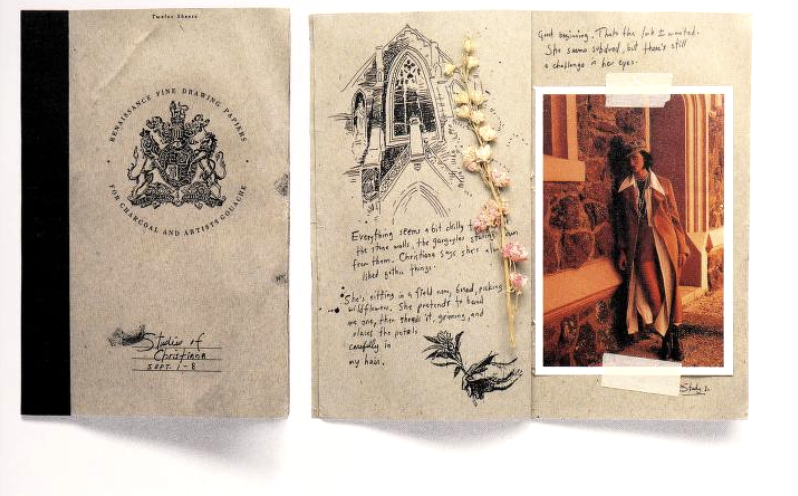 Twelve Sheets
RENAISSANCE FINE DRAWING PAPERS
FOR CHARCOAL AND ARTISTS GOUACHE
Studies of
Christiana
SEPT. 1-8
Everything seems a bit chilly
the stone walls, the gargoyles staring down
from them. Christiana says she's
liked gothic things.
She's sitting in a field now, bored, picking
wildflowers. She pretends to hand
me one, then shreds it, grinning, and
places the petals
carefully in
my hair.
Good beginning. Thats the look I wanted.
She seems subdued, but there's still
a challenge in her eyes.
Study